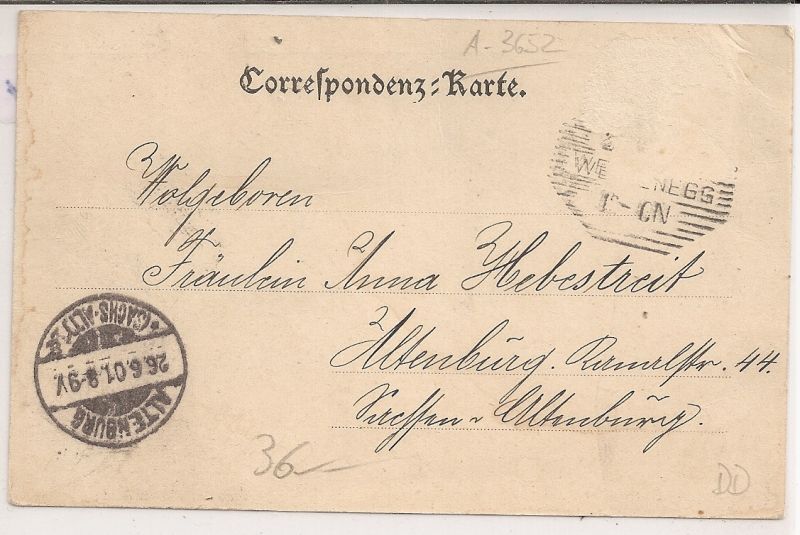 A-3652
Correspondenz-Karte.
WE NEGG
Wolgeboren
Fräulein Anna Hebestreit
Altenburg. Kanalstr. 44.
Sachsen-Altenburg.
ALTENBURG
26.6.01.8-9V.
(SACHS-ALT)
36
DD